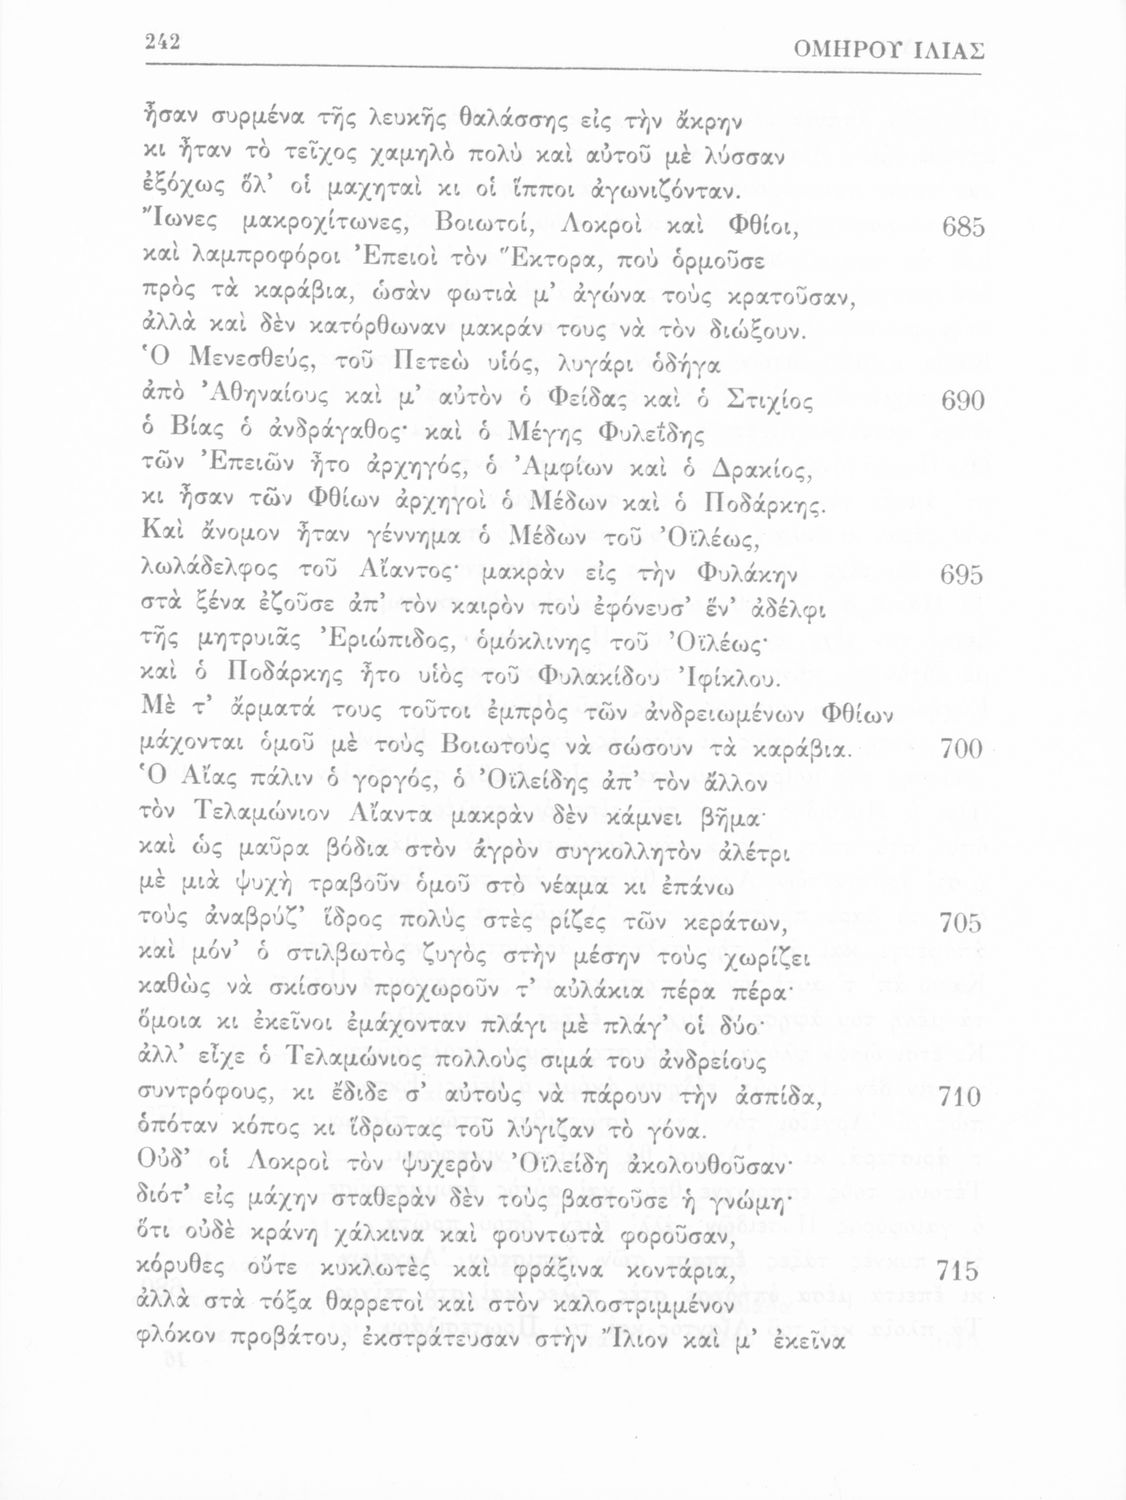 242
ΟΜΗΡΟΥ ΙΛΙΑΣ
ἦσαν συρμένα τῆς λευκῆς θαλάσσης εἰς τὴν ἄκρην
κι ἦταν τὸ τεῖχος χαμηλὸ πολὺ καὶ αὐτοῦ μὲ λύσσαν
ἐξόχως ὅλ’ οἱ μαχηταὶ κι οἱ ἵπποι ἀγωνιζόνταν.
Ἴωνες μακροχίτωνες, Βοιωτοί, Λοκροὶ καὶ Φθίοι, 685
καὶ λαμπροφόροι Ἐπειοὶ τὸν Ἕκτορα, ποὺ ὁρμοῦσε
πρὸς τὰ καράβια, ὡσὰν φωτιὰ μ’ ἀγώνα τοὺς κρατοῦσαν,
ἀλλὰ καὶ δὲν κατόρθωναν μακράν τους νὰ τὸν διώξουν.
Ὁ Μενεσθεύς, τοῦ Πετεὼ υἱός, λυγάρι ὁδήγα
ἀπὸ Ἀθηναίους καὶ μ’ αὐτὸν ὁ Φείδας καὶ ὁ Στιχίος 690
ὁ Βίας ὁ ἀνδράγαθος· καὶ ὁ Μέγης Φυλεΐδης
τῶν Ἐπειῶν ἦτο ἀρχηγός, ὁ Ἀμφίων καὶ ὁ Δρακίος,
κι ἦσαν τῶν Φθίων ἀρχηγοὶ ὁ Μέδων καὶ ὁ Ποδάρκης.
Καὶ ἄνομον ἦταν γέννημα ὁ Μέδων τοῦ Ὀϊλέως,
λωλάδελφος τοῦ Αἴαντος· μακρὰν εἰς τὴν Φυλάκην 695
στὰ ξένα ἐζοῦσε ἀπ’ τὸν καιρὸν ποὺ ἐφόνευσ’ ἕν’ ἀδέλφι
τῆς μητρυιᾶς Ἐριώπιδος, ὁμόκλινης τοῦ Ὀϊλέως·
καὶ ὁ Ποδάρκης ἦτο υἱὸς τοῦ Φυλακίδου Ἰφίκλου.
Μὲ τ’ ἅρματά τους τοῦτοι ἐμπρὸς τῶν ἀνδρειωμένων Φθίων
μάχονται ὁμοῦ μὲ τοὺς Βοιωτοὺς νὰ σώσουν τὰ καράβια. 700
Ὁ Αἴας πάλιν ὁ γοργός, ὁ Ὀϊλείδης ἀπ’ τὸν ἄλλον
τὸν Τελαμώνιον Αἴαντα μακρὰν δὲν κάμνει βῆμα·
καὶ ὡς μαῦρα βόδια στὸν ἀγρὸν συγκολλητὸν ἀλέτρι
μὲ μιὰ ψυχὴ τραβοῦν ὁμοῦ στὸ νέαμα κι ἐπάνω
τοὺς ἀναβρύζ’ ἵδρος πολὺς στὲς ρίζες τῶν κεράτων, 705
καὶ μόν’ ὁ στιλβωτὸς ζυγὸς στὴν μέσην τοὺς χωρίζει
καθὼς νὰ σκίσουν προχωροῦν τ’ αὐλάκια πέρα πέρα·
ὅμοια κι ἐκεῖνοι ἐμάχονταν πλάγι μὲ πλάγ’ οἱ δύο·
ἀλλ’ εἶχε ὁ Τελαμώνιος πολλοὺς σιμά του ἀνδρείους
συντρόφους, κι ἔδιδε σ’ αὐτοὺς νὰ πάρουν τὴν ἀσπίδα, 710
ὁπόταν κόπος κι ἵδρωτας τοῦ λύγιζαν τὸ γόνα.
Οὐδ’ οἱ Λοκροὶ τὸν ψυχερὸν Ὀϊλείδη ἀκολουθοῦσαν·
διότ’ εἰς μάχην σταθερὰν δὲν τοὺς βαστοῦσε ἡ γνώμη·
ὅτι οὐδὲ κράνη χάλκινα καὶ φουντωτὰ φοροῦσαν,
κόρυθες οὔτε κυκλωτὲς καὶ φράξινα κοντάρια, 715
ἀλλὰ στὰ τόξα θαρρετοὶ καὶ στὸν καλοστριμμένον
φλόκον προβάτου, ἐκστράτευσαν στὴν Ἴλιον καὶ μ’ ἐκεῖνα